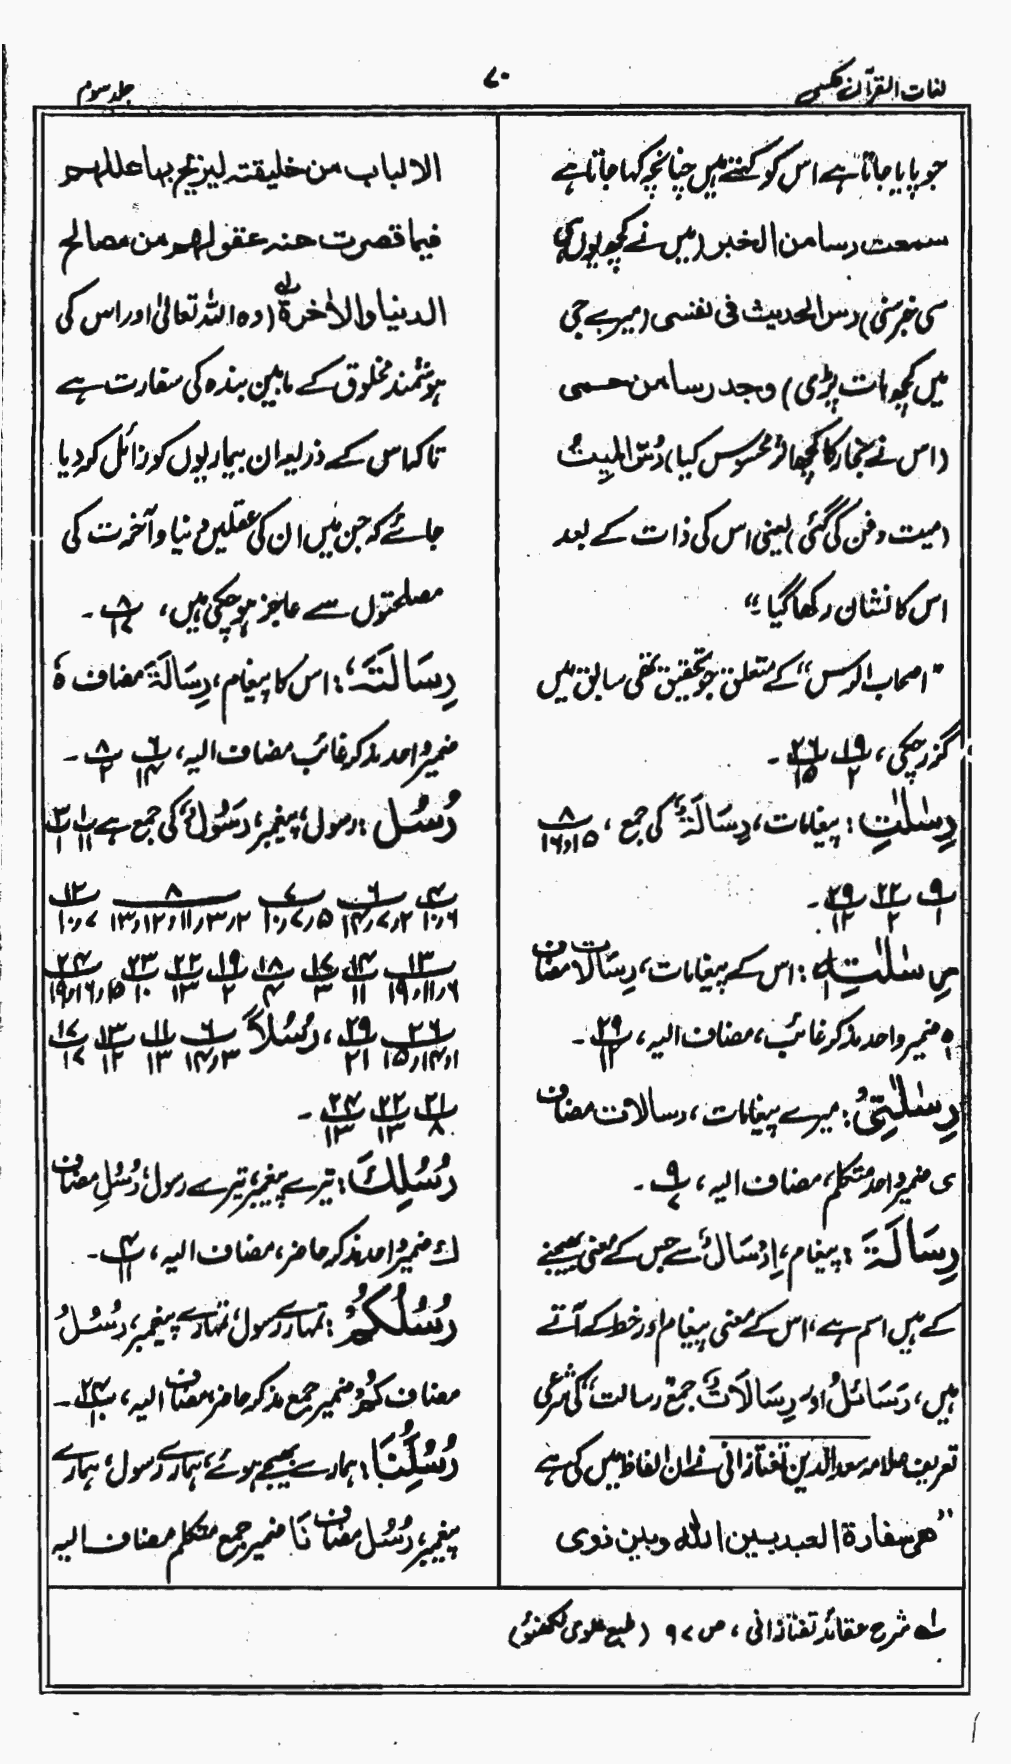 لغات القرآن عکسی
۷۰
جلد سوم
جو پایا جاتا ہے اس کو کہتے ہیں چنانچہ کہا جاتا ہے
سمعت رسا من الخبر (میں نے کچھ یوں ہی
سی خبر سنی) رس الحدیث فی نفسی (میرے جی
میں کچھ بات پڑی) وجد رسا من حمی
(اس نے بخار کا کچھ اثر محسوس کیا) رُسّ المیتُ
(میت دفن کی گئی) یعنی اس کی ذات کے بعد
اس کا نشان رکھا گیا ؛"
"اصحاب الرس" کے متعلق جو تحقیق تھی سابق میں
گزر چکی، ۱۹/۲ ۲۶/۱۵ ۔
رِسٰلٰتِ: پیغامات، رِسَالَۃٌ کی جمع، ۸/۱۵و۱۶
۹/۱ ۲۲/۲ ۲۹/۱۲ ۔
رِسٰلٰتِہٖ: اس کے پیغامات، رِسَالات مضاف
ہ ضمیر واحد مذکر غائب، مضاف الیہ، ۲۹/۱۲ ۔
رِسٰلٰتِیْ: میرے پیغامات، رسالات مضاف
ی ضمیر واحد متکلم، مضاف الیہ، ۹/۷ ۔
رِسَالَۃَ: پیغام، اِرْسَالٌ سے جس کے معنی بھیجنے
کے ہیں اسم ہے، اس کے معنی پیغام اور خط کے آتے
ہیں، رَسَائلُ اور رِسَالَاتٌ جمع "رسالت" کی شرعی
تعریف علامہ سعد الدین تفتازانی نے ان الفاظ میں کی ہے
"ھی سفارۃ العبد بین اللہ وبین ذوی
الالباب من خلیقتہ لیزیح بہا عللہم
فیما قصرت عنہ عقولہم من مصالح
الدنیا والاٰخرۃ لہ (وہ اللہ تعالیٰ اور اس کی
ہوشمند مخلوق کے مابین بندہ کی سفارت ہے
تاکہ اس کے ذریعہ ان بیماریوں کو زائل کر دیا
جائے کہ جن میں ان کی عقلیں دنیا و آخرت کی
مصلحتوں سے عاجز ہو چکی ہیں، ۸/۱۷ ۔
رِسَالَتَہٗ: اس کا پیغام، رِسَالَۃَ مضاف ہٗ
ضمیر واحد مذکر غائب مضاف الیہ، ۶/۱۴ ۸/۲ ۔
رُسُل: رسول، پیغمبر، رَسُوْلٌ کی جمع ہے ۱/۱۱ ۳/۱
۴/۶و۱۰ ۶/۲و۷و۱۴ ۷/۵و۷و۱۰ ۸/۲و۳و۱۱و۱۲و۱۳ ۱۲/۷و۱۰
۱۳/۶و۱۱و۱۹ ۱۴/۱۱ ۱۷/۳ ۱۸/۴ ۱۹/۲ ۲۲/۱۳ ۲۳/۱۰ ۲۴/۱۵و۱۶و۱۹
۲۶/۱و۱۴و۱۵ ۲۹/۲۱، رُسُلًا ۶/۳و۱۴ ۱۱/۱۳ ۱۳/۱۲ ۱۷/۱۷
۲۱/۸ ۲۲/۱۳ ۲۴/۱۳ ۔
رُسُلِكَ: تیرے پیغمبر، تیرے رسول، رُسُلِ مضاف
ك ضمیر واحد مذکر حاضر، مضاف الیہ، ۴/۱۱ ۔
رُسُلُکُمْ: تمہارے رسول، تمہارے پیغمبر، رُسُلُ
مضاف کُمْ ضمیر جمع مذکر حاضر، مضاف الیہ، ۲۴/۱۰ ۔
رُسُلُنَا: ہمارے بھیجے ہوئے، ہمارے رسول، ہمارے
پیغمبر، رُسُل مضاف نَا ضمیر جمع متکلم مضاف الیہ
لہ شرح عقائد تفتازانی، ص ۹۷ (طبع علوی لکھنؤ)